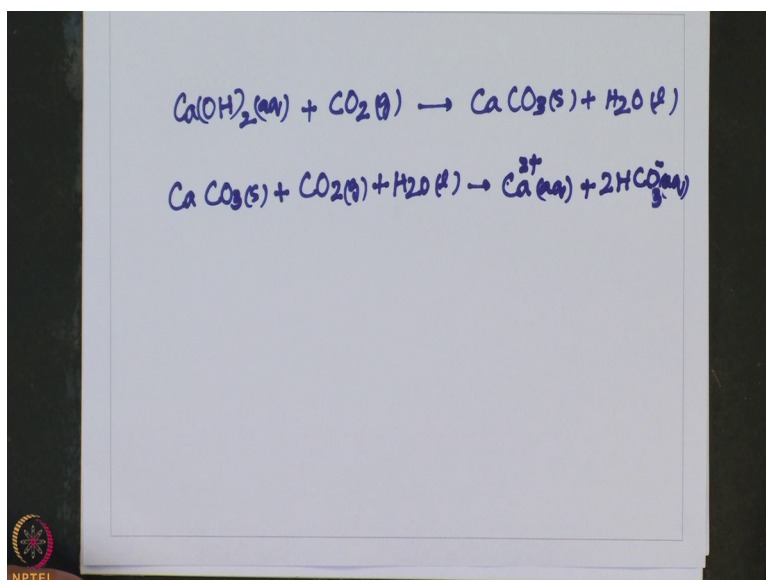 Ca(OH)₂(aq) + CO₂(g) → CaCO₃(s) + H₂O(l)
CaCO₃(s) + CO₂(g) + H₂O(l) → Ca²⁺(aq) + 2HCO₃⁻(aq)
NPTEL